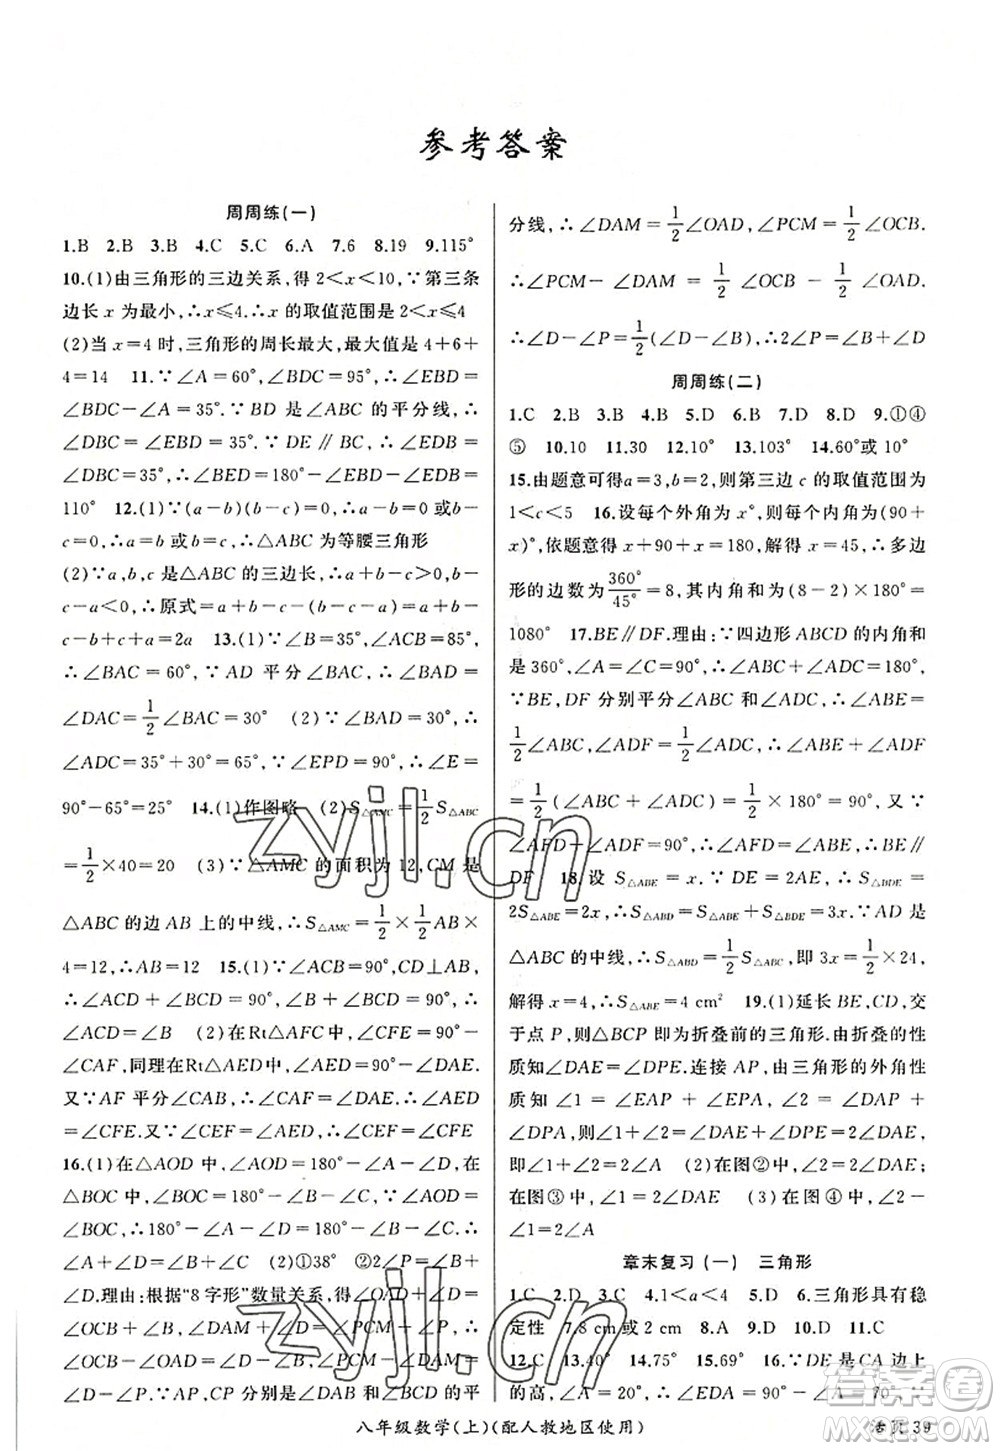 参考答案
周周练(一)
1.B 2.B 3.B 4.C 5.C 6.A 7.6 8.19 9.115°
10.(1)由三角形的三边关系,得 2<x<10,∵第三条
边长 x 为最小,∴x≤4.∴x 的取值范围是2<x≤4
(2)当 x=4 时,三角形的周长最大,最大值是 4+6+
4=14 11.∵∠A=60°,∠BDC=95°,∴∠EBD=
∠BDC-∠A=35°.∵BD 是∠ABC 的平分线,∴
∠DBC=∠EBD=35°.∵DE∥BC,∴∠EDB=
∠DBC=35°,∴∠BED=180°-∠EBD-∠EDB=
110° 12.(1)∵(a-b)(b-c)=0,∴a-b=0 或 b-
c=0,∴a=b 或b=c,∴△ABC 为等腰三角形
(2)∵a,b,c 是△ABC 的三边长,∴a+b-c>0,b-
c-a<0,∴原式=a+b-c-(b-c-a)=a+b-
c-b+c+a=2a 13.(1)∵∠B=35°,∠ACB=85°,
∴∠BAC=60°.∵AD 平分∠BAC,∴
∠DAC=1/2∠BAC=30° (2)∵∠BAD=30°,∴
∠ADC=35°+30°=65°,∵∠EPD=90°,∴∠E=
90°-65°=25° 14.(1)作图略 (2)S△AMC=1/2S△ABC
=1/2×40=20 (3)∵△AMC的面积为12,CM 是
△ABC 的边 AB 上的中线,∴S△AMC=1/2×1/2AB×
4=12,∴AB=12 15.(1)∵∠ACB=90°,CD⊥AB,
∴∠ACD+∠BCD=90°,∠B+∠BCD=90°,∴
∠ACD=∠B (2)在Rt△AFC 中,∠CFE=90°-
∠CAF,同理在Rt△AED中,∠AED=90°-∠DAE.
又∵AF 平分∠CAB,∴∠CAF=∠DAE,∴∠AED=
∠CFE.又∵∠CEF=∠AED,∴∠CEF=∠CFE
16.(1)在△AOD 中,∠AOD=180°-∠A-∠D,在
△BOC 中,∠BOC=180°-∠B-∠C.∵∠AOD=
∠BOC,∴180°-∠A-∠D=180°-∠B-∠C,∴
∠A+∠D=∠B+∠C (2)①38° ②∠B+2∠P=
∠D.理由:根据“8字形”数量关系,∠OAD+∠D=
∠OCB+∠B,∠DAM+∠D=∠PCM+∠P,∴
∠OCB-∠OAD=∠D-∠B,∠PCM-∠DAM=
∠D-∠P.∵AP,CP 分别是∠DAB 和∠BCD 的平
分线,∴∠DAM=1/2∠OAD,∠PCM=1/2∠OCB.
∴∠PCM-∠DAM=1/2∠OCB-1/2∠OAD.
∴∠D-∠P=1/2(∠D-∠B),∴2∠P=∠B+∠D
周周练(二)
1.C 2.B 3.B 4.B 5.D 6.B 7.D 8.D 9.①④
⑤ 10.10 11.30 12.10° 13.103° 14.60°或 10°
15.由题意可得a=3,b=2,则第三边 c 的取值范围为
1<c<5 16.设每个外角为 x°,则每个内角为(90+
x)°,依题意得 x+90+x=180,解得 x=45,∴多边
形的边数为360°/45°=8,其内角和为(8-2)×180°=
1080° 17.BE∥DF.理由:∵四边形 ABCD 的内角和
是 360°,∠A=∠C=90°,∴∠ABC+∠ADC=180°,
∵BE,DF 分别平分∠ABC 和∠ADC,∴∠ABE=
1/2∠ABC,∠ADF=1/2∠ADC,∴∠ABE+∠ADF
=1/2(∠ABC+∠ADC)=1/2×180°=90°,又∵
∠AFD+∠ADF=90°,∴∠AFD=∠ABE,∴BE∥
DF 18.设 S△ABE=x,∵DE=2AE,∴S△BDE=
2S△ABE=2x,∴S△ABD=S△ABE+S△BDE=3x.∵AD 是
△ABC 的中线,∴S△ABD=1/2S△ABC,即 3x=1/2×24,
解得 x=4,∴S△ABE=4 cm² 19.(1)延长 BE,CD,交
于点 P,则△BCP 即为折叠前的三角形.由折叠的性
质知∠DAE=∠DPE.连接 AP,由三角形的外角性
质知 ∠1=∠EAP+∠EPA,∠2=∠DAP+
∠DPA,则∠1+∠2=∠DAE+∠DPE=2∠DAE,
即∠1+∠2=2∠A (2)由图②可知,∠2=2∠A
在图③中,∠2=2∠DAE (3)由图④可知,∠2-
∠1=2∠A
章末复习(一) 三角形
1.C 2.D 3.C 4.1<a<4 5.D 6.三角形具有稳
定性 7.8 cm或 2 cm 8.A 9.D 10.D 11.C
12.C 13.40° 14.75° 15.29° 16.∵DE 是CA 边上
的高,∴∠DEA=∠DEC=90°.∵∠A=70°,∴
八年级数学(上)(配人教地区使用)
活页 39
zyjl.cn
zyjl.cn
答案圈
MXQE.COM